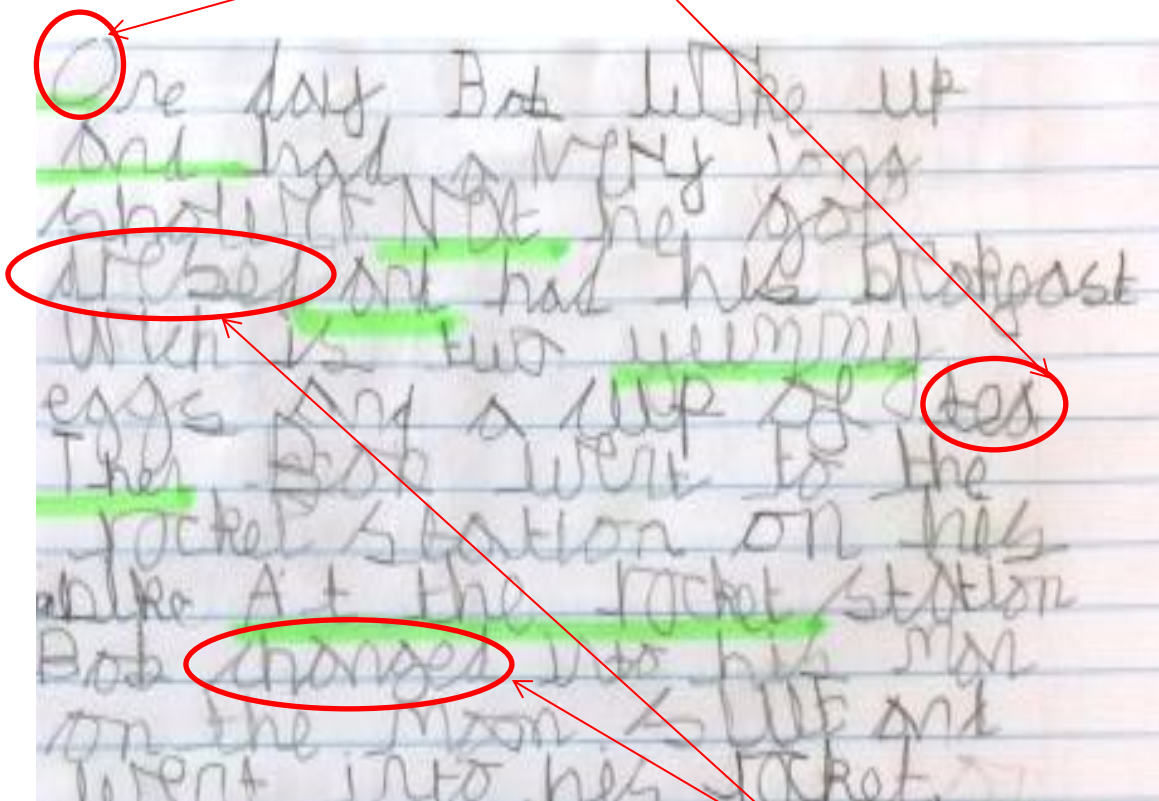 One day Bob woke up
And had a very long
he got
dressed and had his
two yummy
eggs And a cup of tea
Then Bob went to the
rocket station on his
At the rocket station
Bob changed into his man
on the moon suit and
went into his rocket.